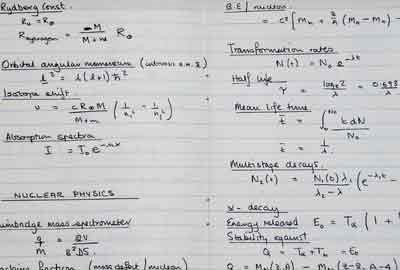 Rydberg Const.
R₀ = R∞
R_Hydrogen = M / (M + m) R∞
Orbital angular momentum
l² = l(l+1)ħ²
Isotope shift.
υ = cR∞M / (M+m) (1/n₁² - 1/n₂²)
Absorption spectra
I = I₀e^(-nσx)
NUCLEAR PHYSICS
mass spectrometer
q/m = 2V / B²DS
fraction (mass defect / nucleon)
B.E / nucleon
= c² [Mₙ + Z/A (M_H - Mₙ) -
Transformation rates
N(t) = N₀ e^(-λt)
Half life
τ = log_e 2 / λ = 0.693 / λ
Mean life time
t̄ = ∫₀^N₀ t dN / N₀
t̄ = 1/λ
Multistage decays.
N₂(t) = N₁(0) λ₁ / (λ₂ - λ₁) (e^(-λ₁t) -
α - decay
Energy released E₀ = Tα (1 +
Stability against
Q = Tα + T_D = E₀
Q = (Z,A) - (Z-2, A-4)